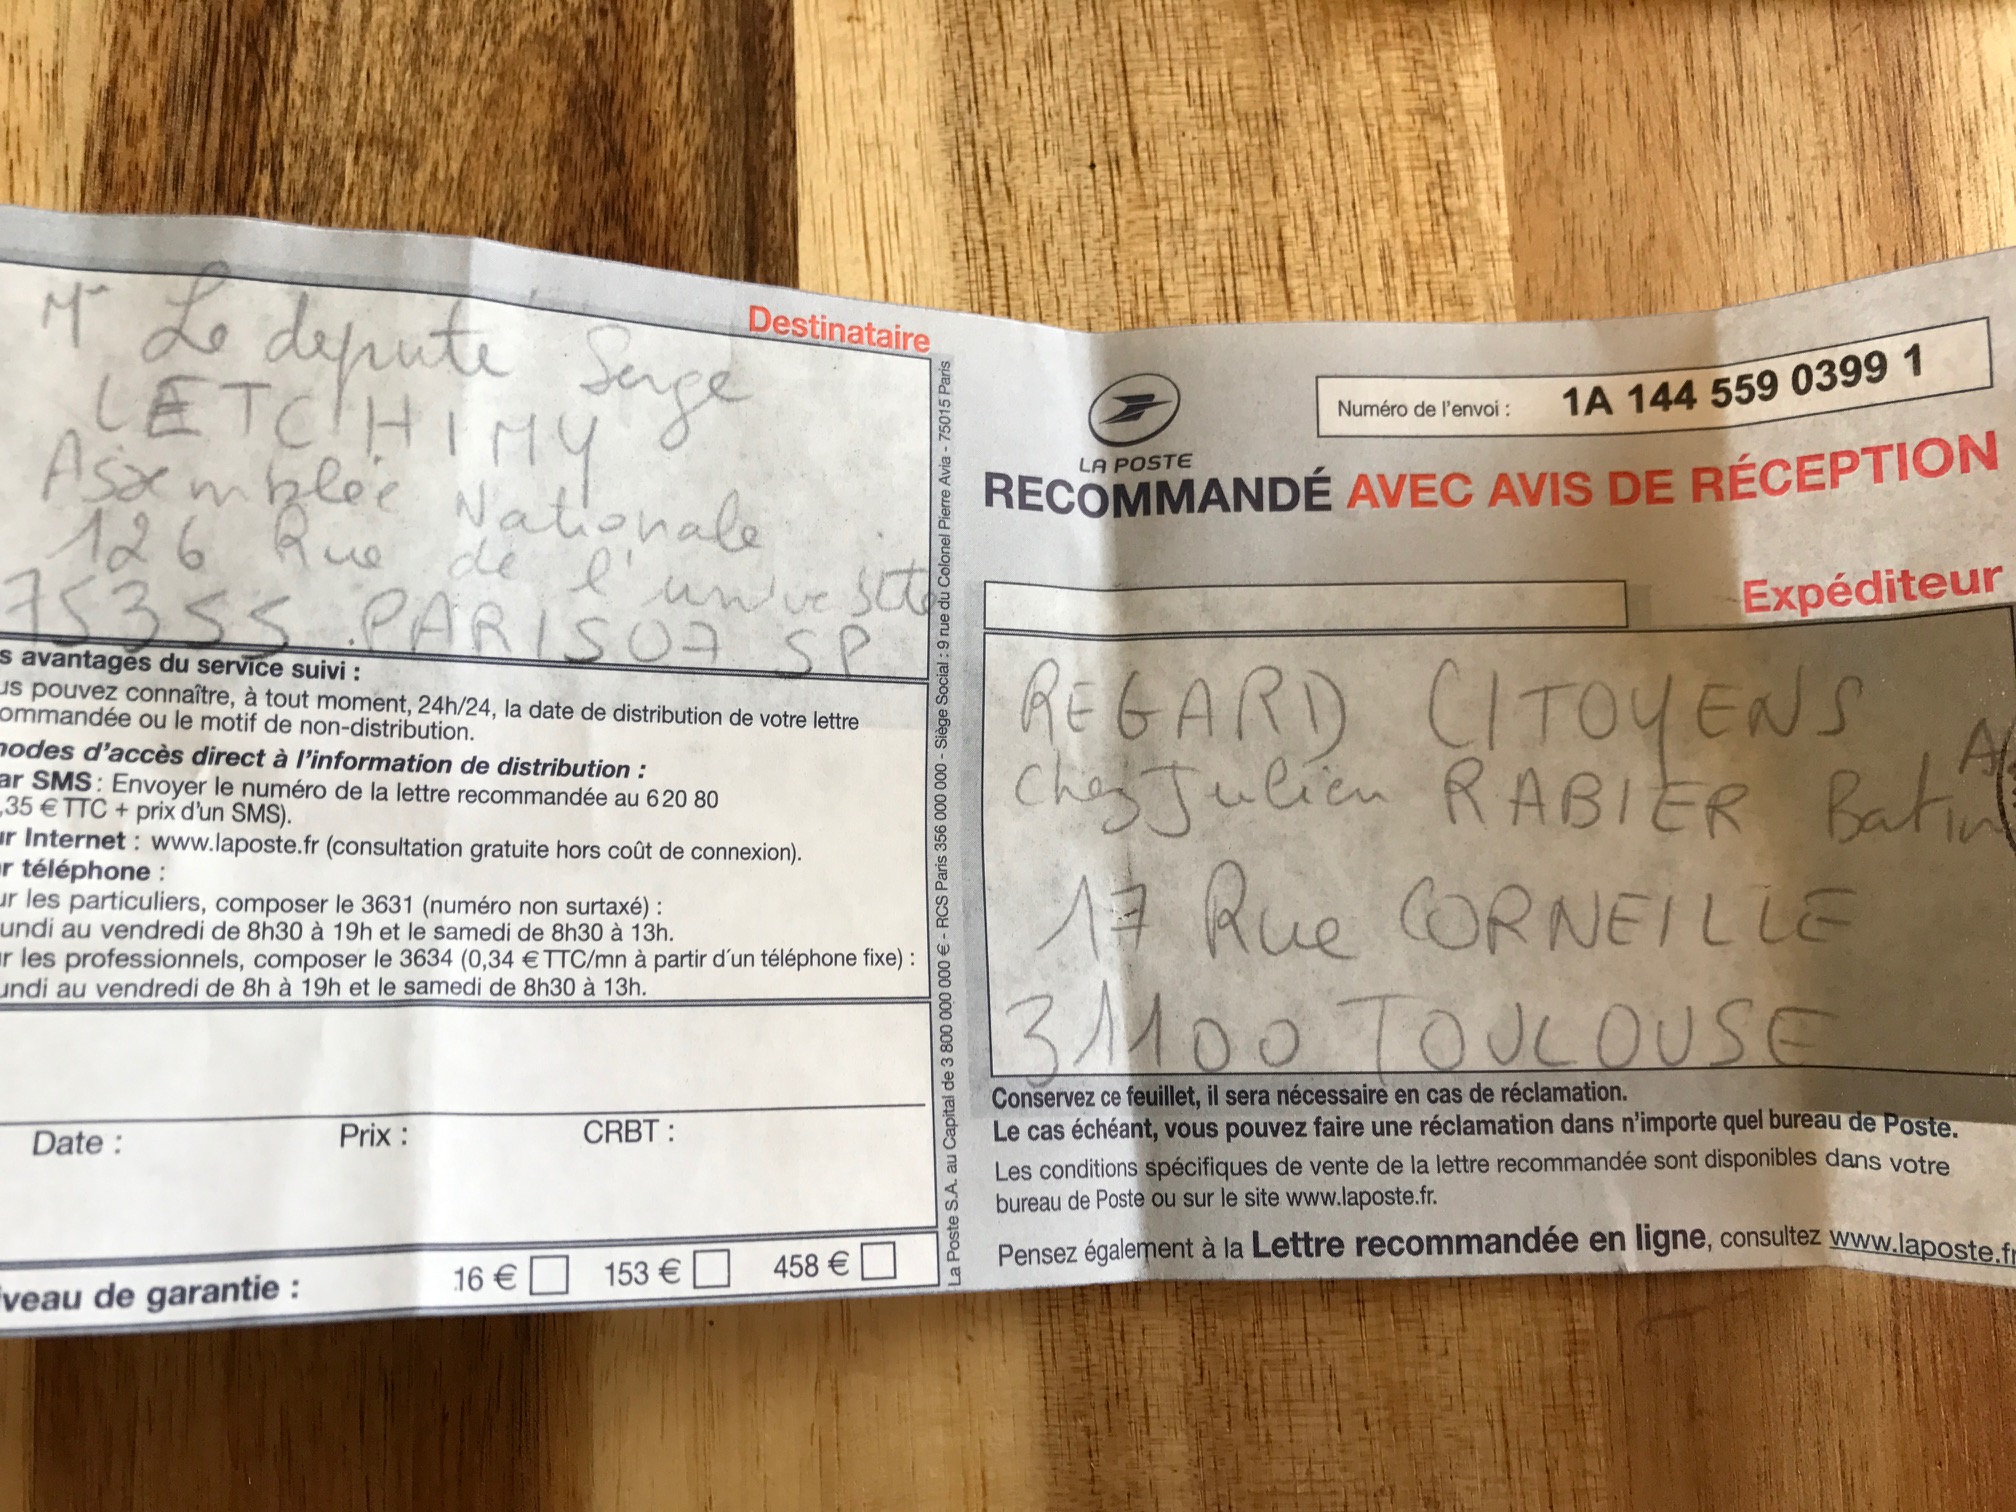 Destinataire
Mr Le deputé Serge
LETCHIMY
Assemblée Nationale
126 Rue de l'université
75355 PARIS 07 SP
s avantages du service suivi :
us pouvez connaître, à tout moment, 24h/24, la date de distribution de votre lettre
ommandée ou le motif de non-distribution.
nodes d'accès direct à l'information de distribution :
ar SMS : Envoyer le numéro de la lettre recommandée au 6 20 80
,35 € TTC + prix d'un SMS).
ur Internet : www.laposte.fr (consultation gratuite hors coût de connexion).
r téléphone :
ur les particuliers, composer le 3631 (numéro non surtaxé) :
undi au vendredi de 8h30 à 19h et le samedi de 8h30 à 13h.
r les professionnels, composer le 3634 (0,34 € TTC/mn à partir d'un téléphone fixe) :
undi au vendredi de 8h à 19h et le samedi de 8h30 à 13h.
Date : Prix : CRBT :
iveau de garantie : 16 € 153 € 458 €
La Poste S.A. au Capital de 3 800 000 000 € - RCS Paris 356 000 000 - Siège Social : 9 rue du Colonel Pierre Avia - 75015 Paris
LA POSTE
Numéro de l'envoi : 1A 144 559 0399 1
RECOMMANDÉ AVEC AVIS DE RÉCEPTION
Expéditeur
REGARD CITOYENS
chez Julien RABIER Batim
17 Rue CORNEILLE
31100 TOULOUSE
Conservez ce feuillet, il sera nécessaire en cas de réclamation.
Le cas échéant, vous pouvez faire une réclamation dans n'importe quel bureau de Poste.
Les conditions spécifiques de vente de la lettre recommandée sont disponibles dans votre
bureau de Poste ou sur le site www.laposte.fr.
Pensez également à la Lettre recommandée en ligne, consultez www.laposte.fr